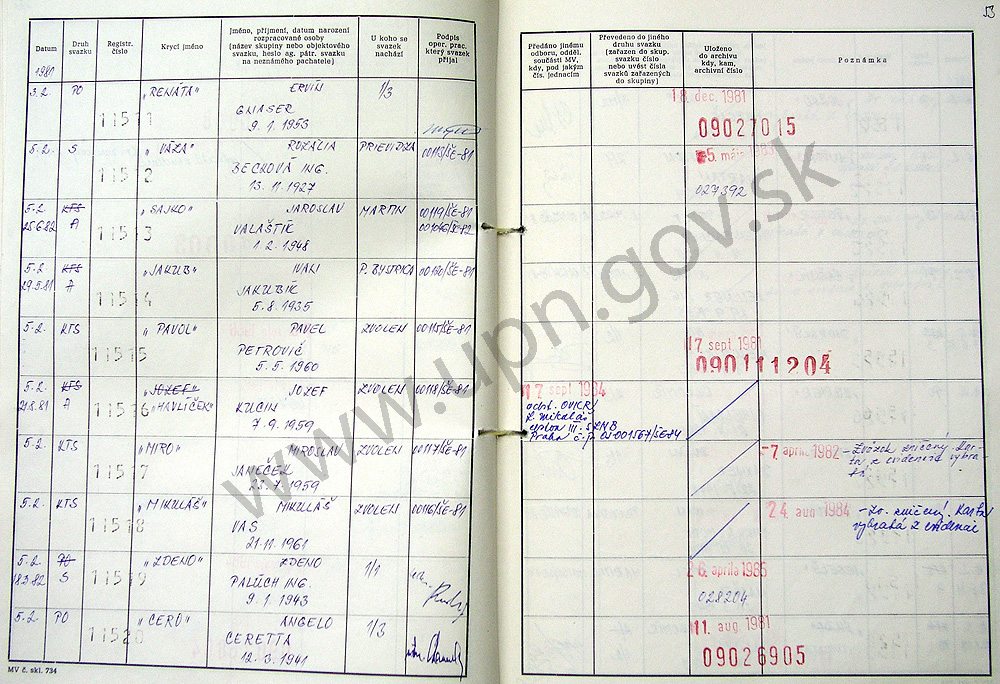 53
Datum
Druh svazku
Registr. číslo
Krycí jméno
Jméno, příjmení, datum narození rozpracované osoby (název skupiny nebo objektového svazku, heslo ag. pátr. svazku na neznámého pachatele)
U koho se svazek nachází
Podpis oper. prac. který svazek přijal
Předáno jinému odboru, odděl. součásti MV, kdy, pod jakým čís. jednacím
Převedeno do jiného druhu svazku (zařazen do skup. svazku číslo nebo uvést čísla svazků zařazených do skupiny)
Uloženo do archivu kdy, kam, archivní číslo
Poznámka
1981
3.2. PO 11511 „RENATA" ERVÍN 1/3
GNASER
9. 1. 1953
18. dec. 1981
09027015
5.2. S 11512 „VÁŽA" ROZÁLIA PRIEVIDZA 00113/ŠE-81
BECKOVÁ ING.
13. 11. 1927
5. mája 1983
027392
5.2. KTS 11513 „SAJKO" JAROSLAV MARTIN 00119/ŠE-81
25.6.82 A VALAŠTÍK
1. 2. 1948
5.2. KTS 11514 „JAKUB" IVAN P. BYSTRICA 00120/ŠE-81
29.5.81 A JAKUBÍK
5. 8. 1935
5.2. KTS 11515 „PAVOL" PAVEL ZVOLEN 00115/ŠE-81
PETROVIČ
5. 5. 1960
17. sept. 1981
090111204
5.2. KTS 11516 „JOZEF" JOZEF ZVOLEN 00118/ŠE-81
21.8.81 A „HAVLÍČEK" KUCIN
7. 9. 1959
17. sept. 1984
odst. OVKR/
Z. Mikuláš
správa III. SNB
Praha č.p. OS-001567/ŠE-84
5.2. KTS 11517 „MIRO" MIROSLAV ZVOLEN 00117/ŠE-81
JANEČEK
23. 7. 1959
-7. apríla 1982 - Zväzok zničený. Karta z evidencie vybratá
5.2. KTS 11518 „MIKULÁŠ" MIKULÁŠ ZVOLEN 00116/ŠE-81
VAS
21. 11. 1961
24. aug. 1984 - Zv. zničený. Karta vybratá z evidencie
5.2. PO 11519 „ZDENO" ZDENO 1/1
18.3.82 S PALÚCH ING.
9. 1. 1943
26. apríla 1985
028204
5.2. PO 11520 „CERO" ANGELO 1/3
CERETTA
12. 3. 1941
11. aug. 1981
09026905
MV č. skl. 734
www.upn.gov.sk